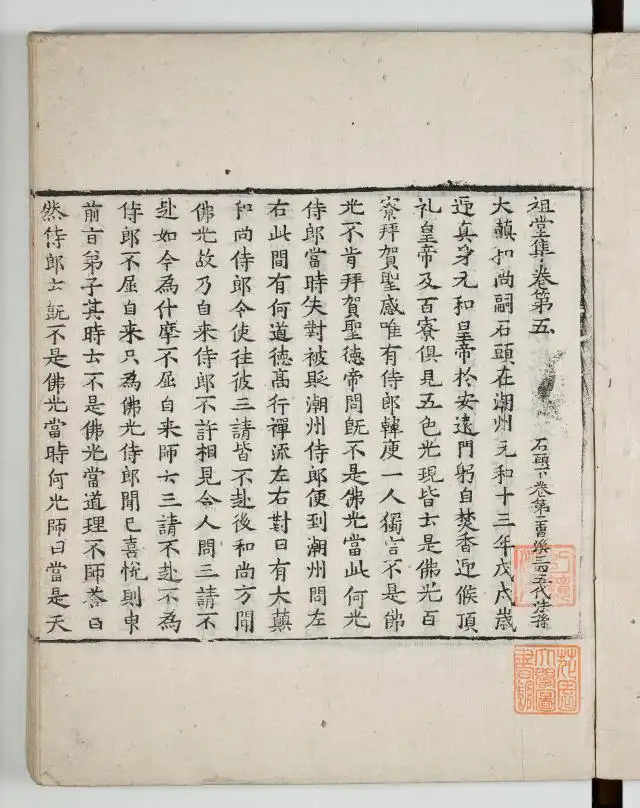 祖堂集卷第五
石頭下卷第二曹溪三四五代法孫
大蕑和尚嗣石頭在潮州元和十三年戊戌歳
迎真身元和皇帝於安遠門躬自焚香迎候頂
礼皇帝及百寮俱見五色光現皆云是佛光百
寮拜賀聖感唯有侍郎韓庾一人獨言不是佛
光不肯拜賀聖徳帝問既不是佛光當此何光
侍郎當時失對被貶潮州侍郎便到潮州問左
右此間有何道徳髙行禪流左右對曰有大蕑
和尚侍郎令使往彼三請皆不赴後和尚方聞
佛光故乃自来侍郎不許相見令人問三請不
赴如今為什摩不屈自来師云三請不赴不為
侍郎不屈自来只為佛光侍郎聞已喜恱則申
前㫖弟子其時云不是佛光當道理不師荅曰
然侍郎云既不是佛光當時何光師曰當是天
花園
大學圖
書館